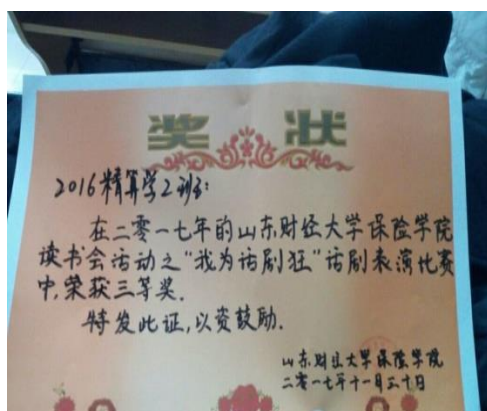 奖状
2016精算学2班:
在二零一七年的山东财经大学保险学院
读书会活动之“我为话剧狂”话剧表演比赛
中,荣获三等奖.
特发此证,以资鼓励.
山东财经大学保险学院
二零一七年十一月三十日